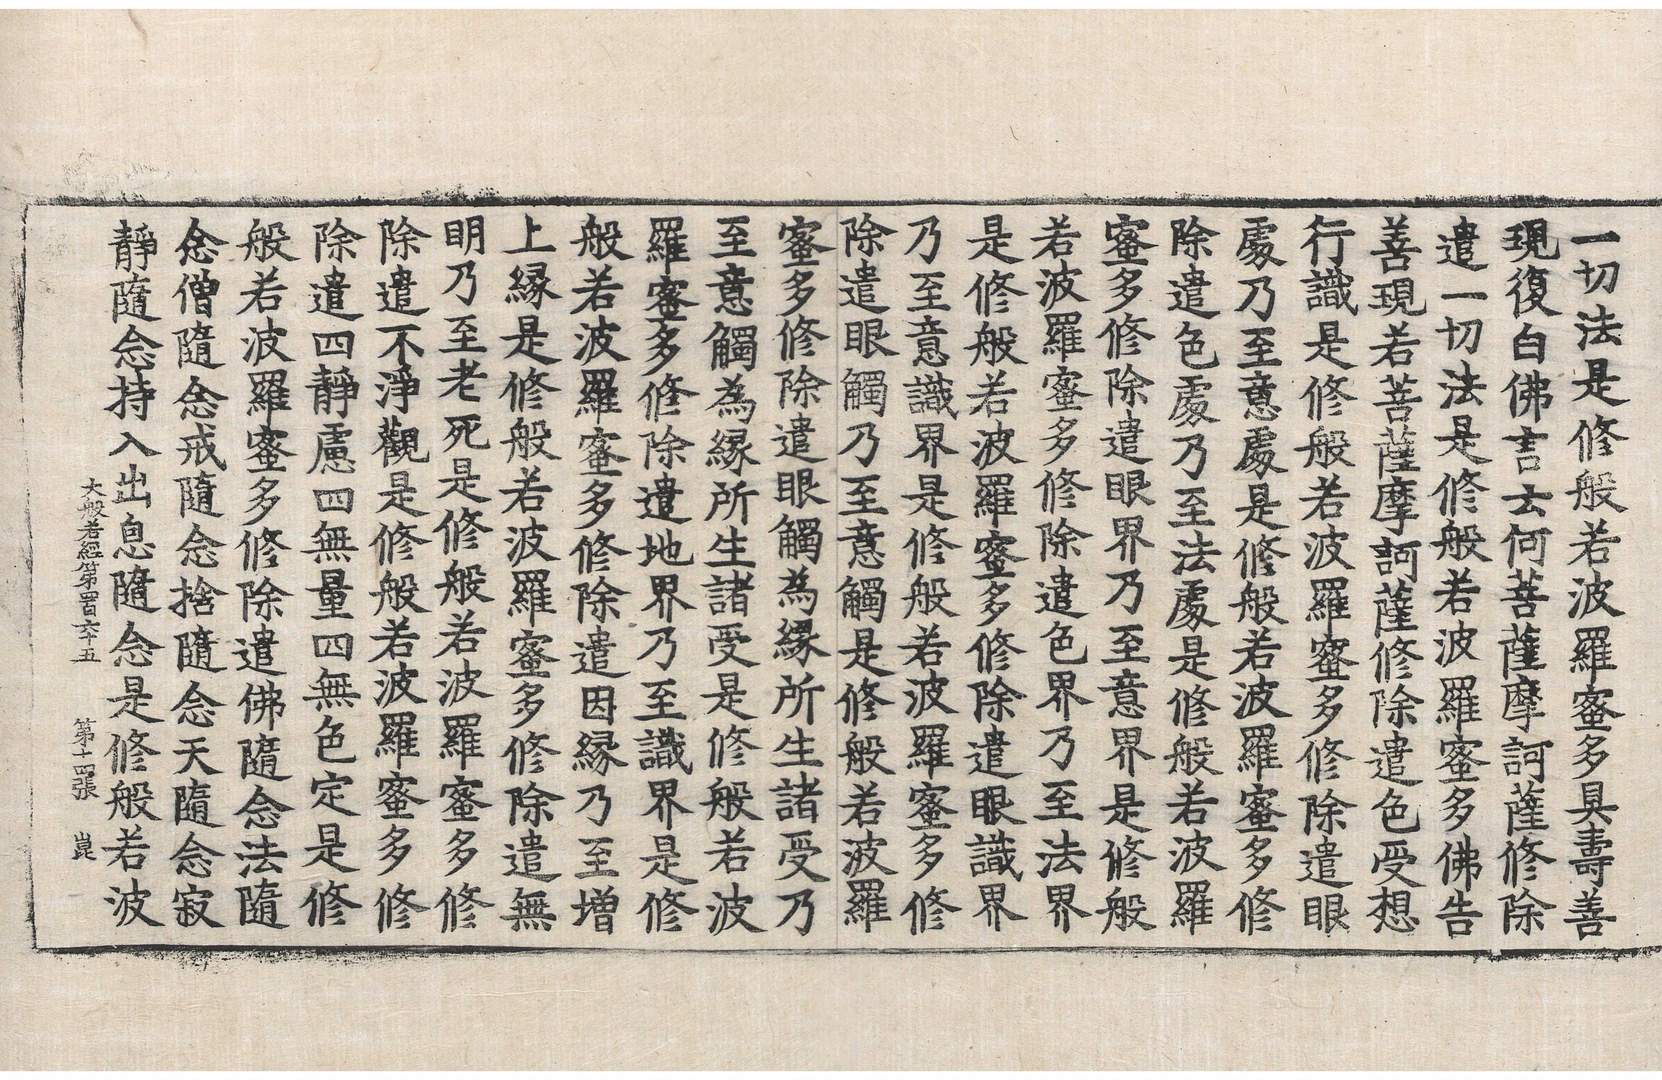 一切法是修般若波羅蜜多具壽善
現復白佛言云何菩薩摩訶薩修除
遣一切法是修般若波羅蜜多佛告
善現若菩薩摩訶薩修除遣色受想
行識是修般若波羅蜜多修除遣眼
處乃至意處是修般若波羅蜜多修
除遣色處乃至法處是修般若波羅
蜜多修除遣眼界乃至意界是修般
若波羅蜜多修除遣色界乃至法界
是修般若波羅蜜多修除遣眼識界
乃至意識界是修般若波羅蜜多修
除遣眼觸乃至意觸是修般若波羅
蜜多修除遣眼觸為緣所生諸受乃
至意觸為緣所生諸受是修般若波
羅蜜多修除遣地界乃至識界是修
般若波羅蜜多修除遣因緣乃至增
上緣是修般若波羅蜜多修除遣無
明乃至老死是修般若波羅蜜多修
除遣不淨觀是修般若波羅蜜多修
除遣四靜慮四無量四無色定是修
般若波羅蜜多修除遣佛隨念法隨
念僧隨念戒隨念捨隨念天隨念寂
靜隨念持入出息隨念是修般若波
大般若經第四百六十五 第十四張 崑